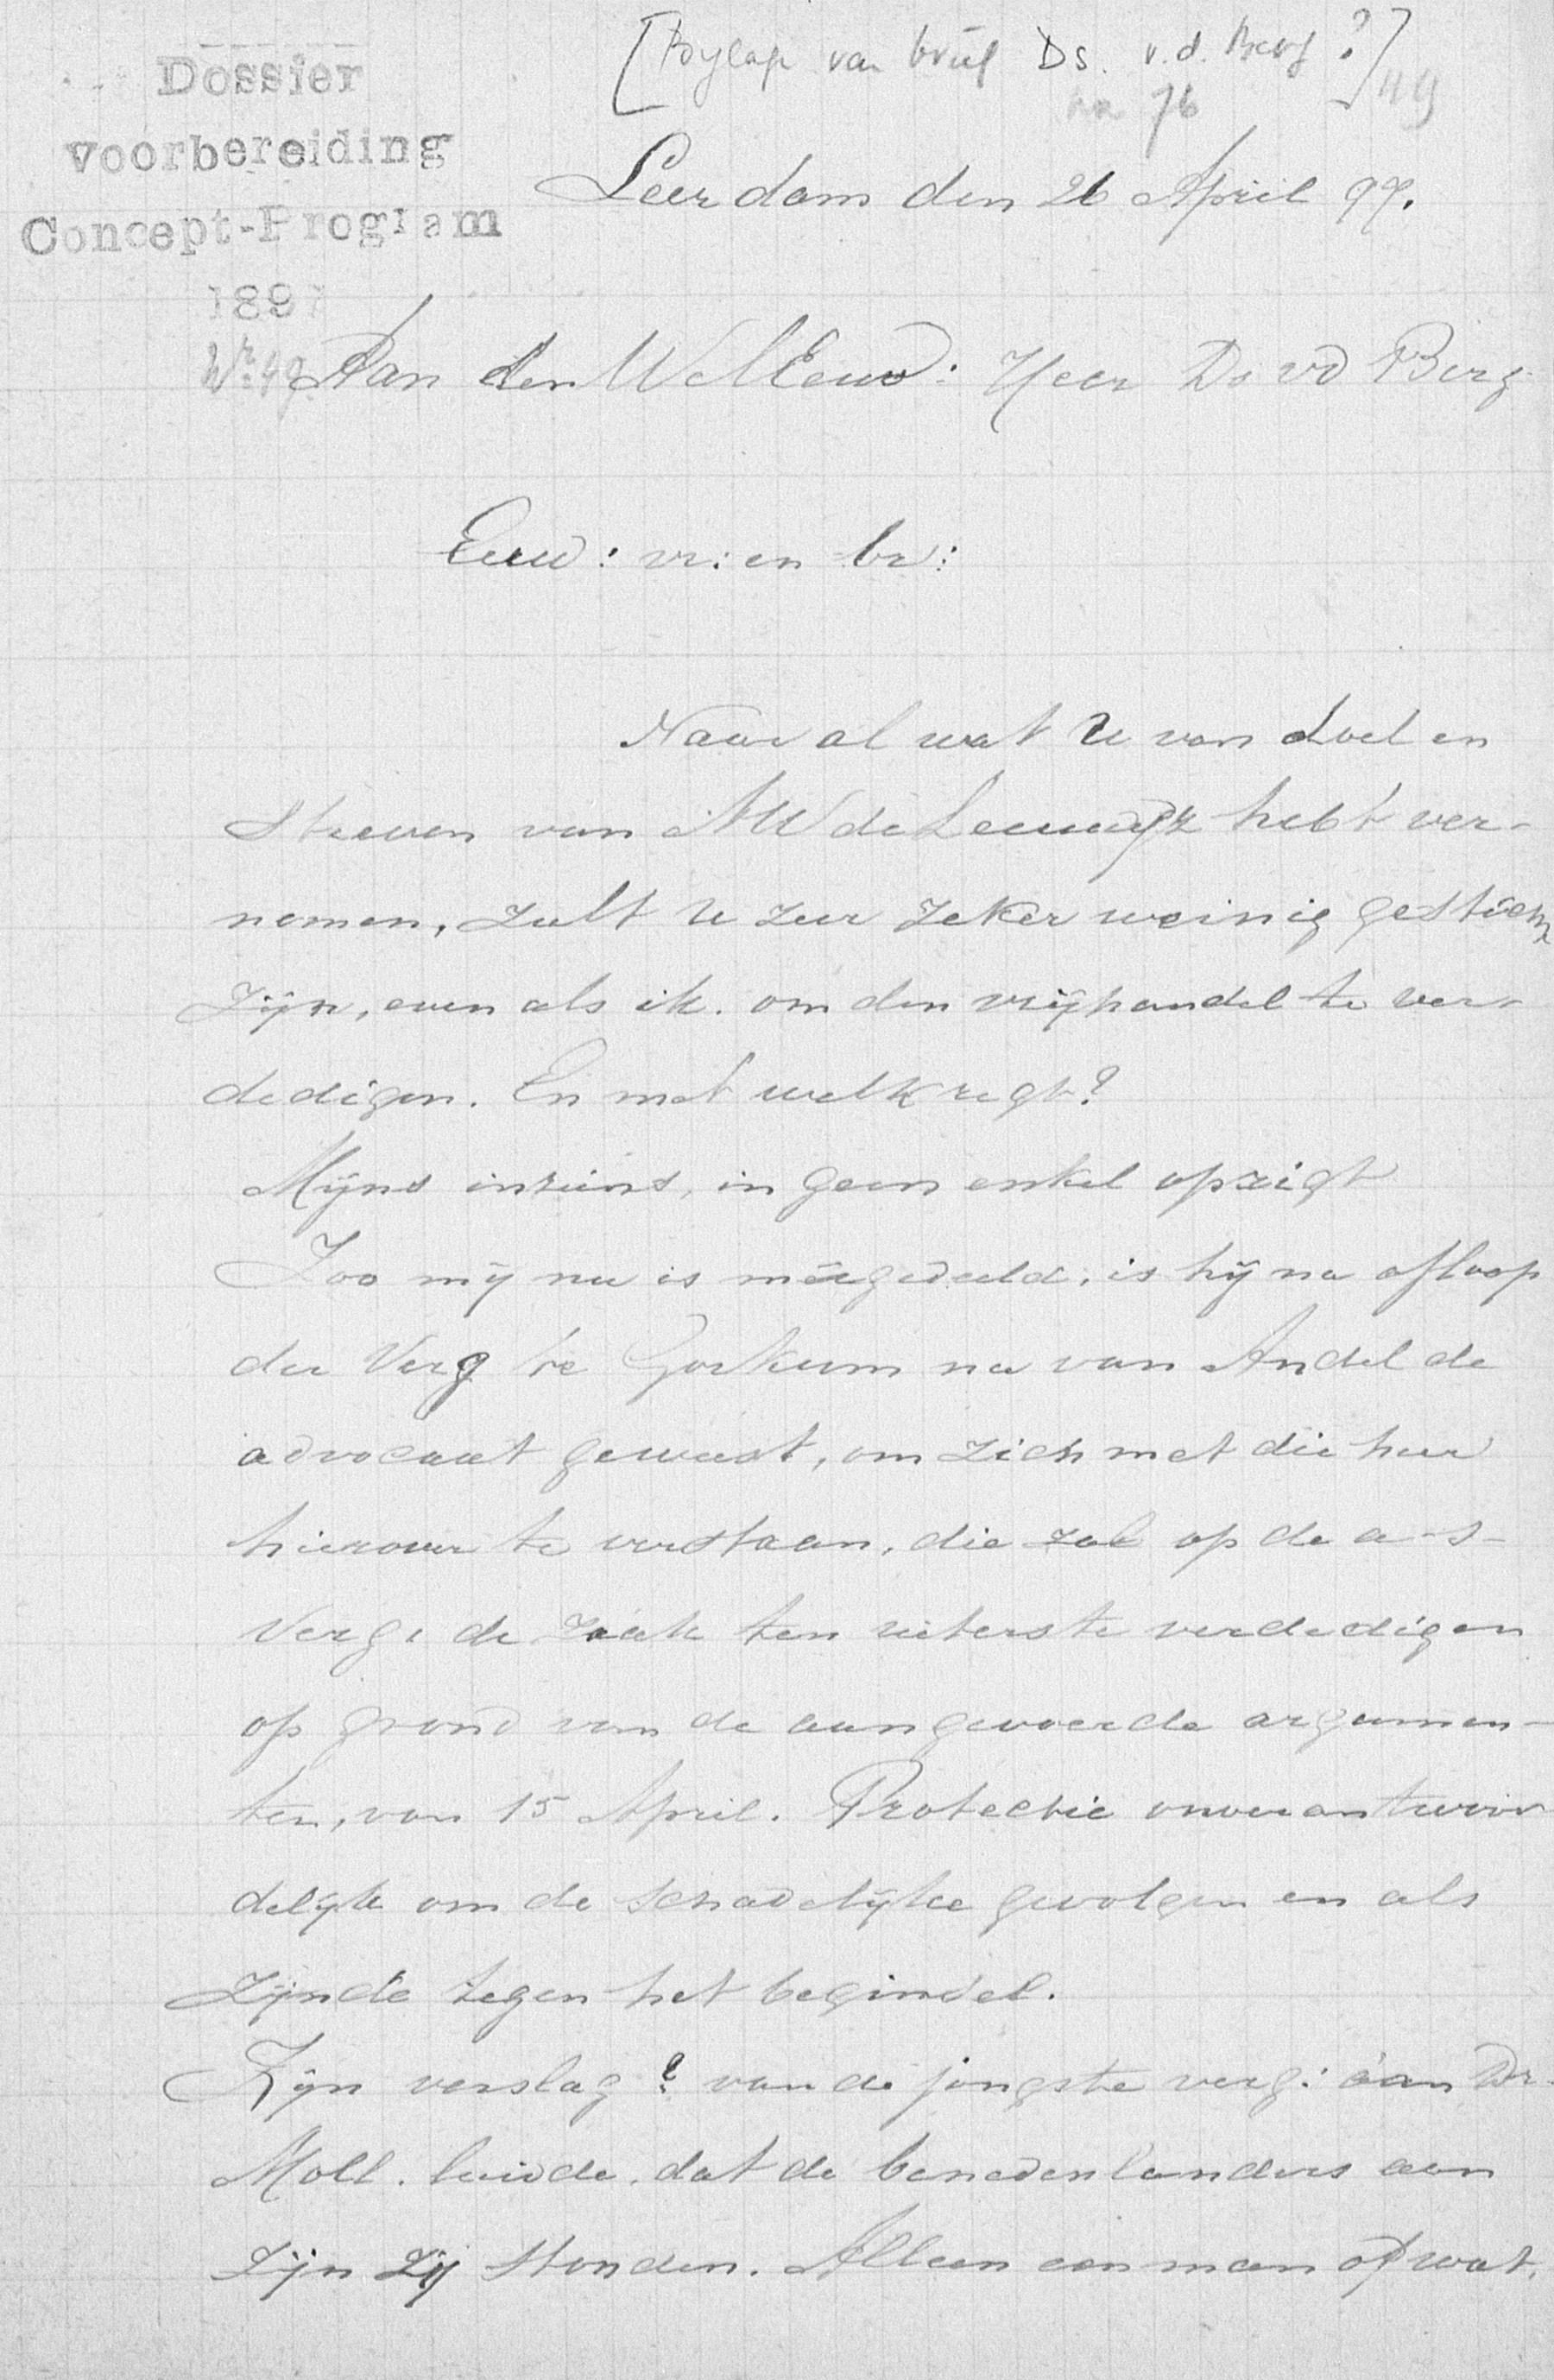 Dossier
voorbereiding
Concept-Program
1897
Nr. 49.
[Bijlage van brief Ds. v.d. Berg?]
na 76
49
Leerdam den 26 April 97.
Aan den WelEeuw: Heer Ds vd Berg
Eeuw: vr: en br:
Naar al wat U van doel en
streven van AW de Leeuw hebt ver-
nomen, zult U zeer zeker weinig gesticht
zijn, even als ik. om den vrijhandel te ver-
dedigen. En met welk regt?
Mijns inziens, in geen enkel opzigt
Zoo mij nu is meegedeeld, is hij na afloop
der Verg te Gorkum na van Andel de
advocaat geweest, om zich met die heer
hierover te verstaan, die zal op de a-s-
Verg: de zaak ten uiterste verdedigen
op grond van de aangevoerde argumen-
ten, van 15 April. Protectie onverantwoor
delijk om de schadelijke gevolgen en als
zijnde tegen het beginsel.
Zijn verslag? van de jongste verg: aan Dr.
Moll. luidde, dat de benedenlanders aan
zijn zij stonden. Alleen een man of wat.